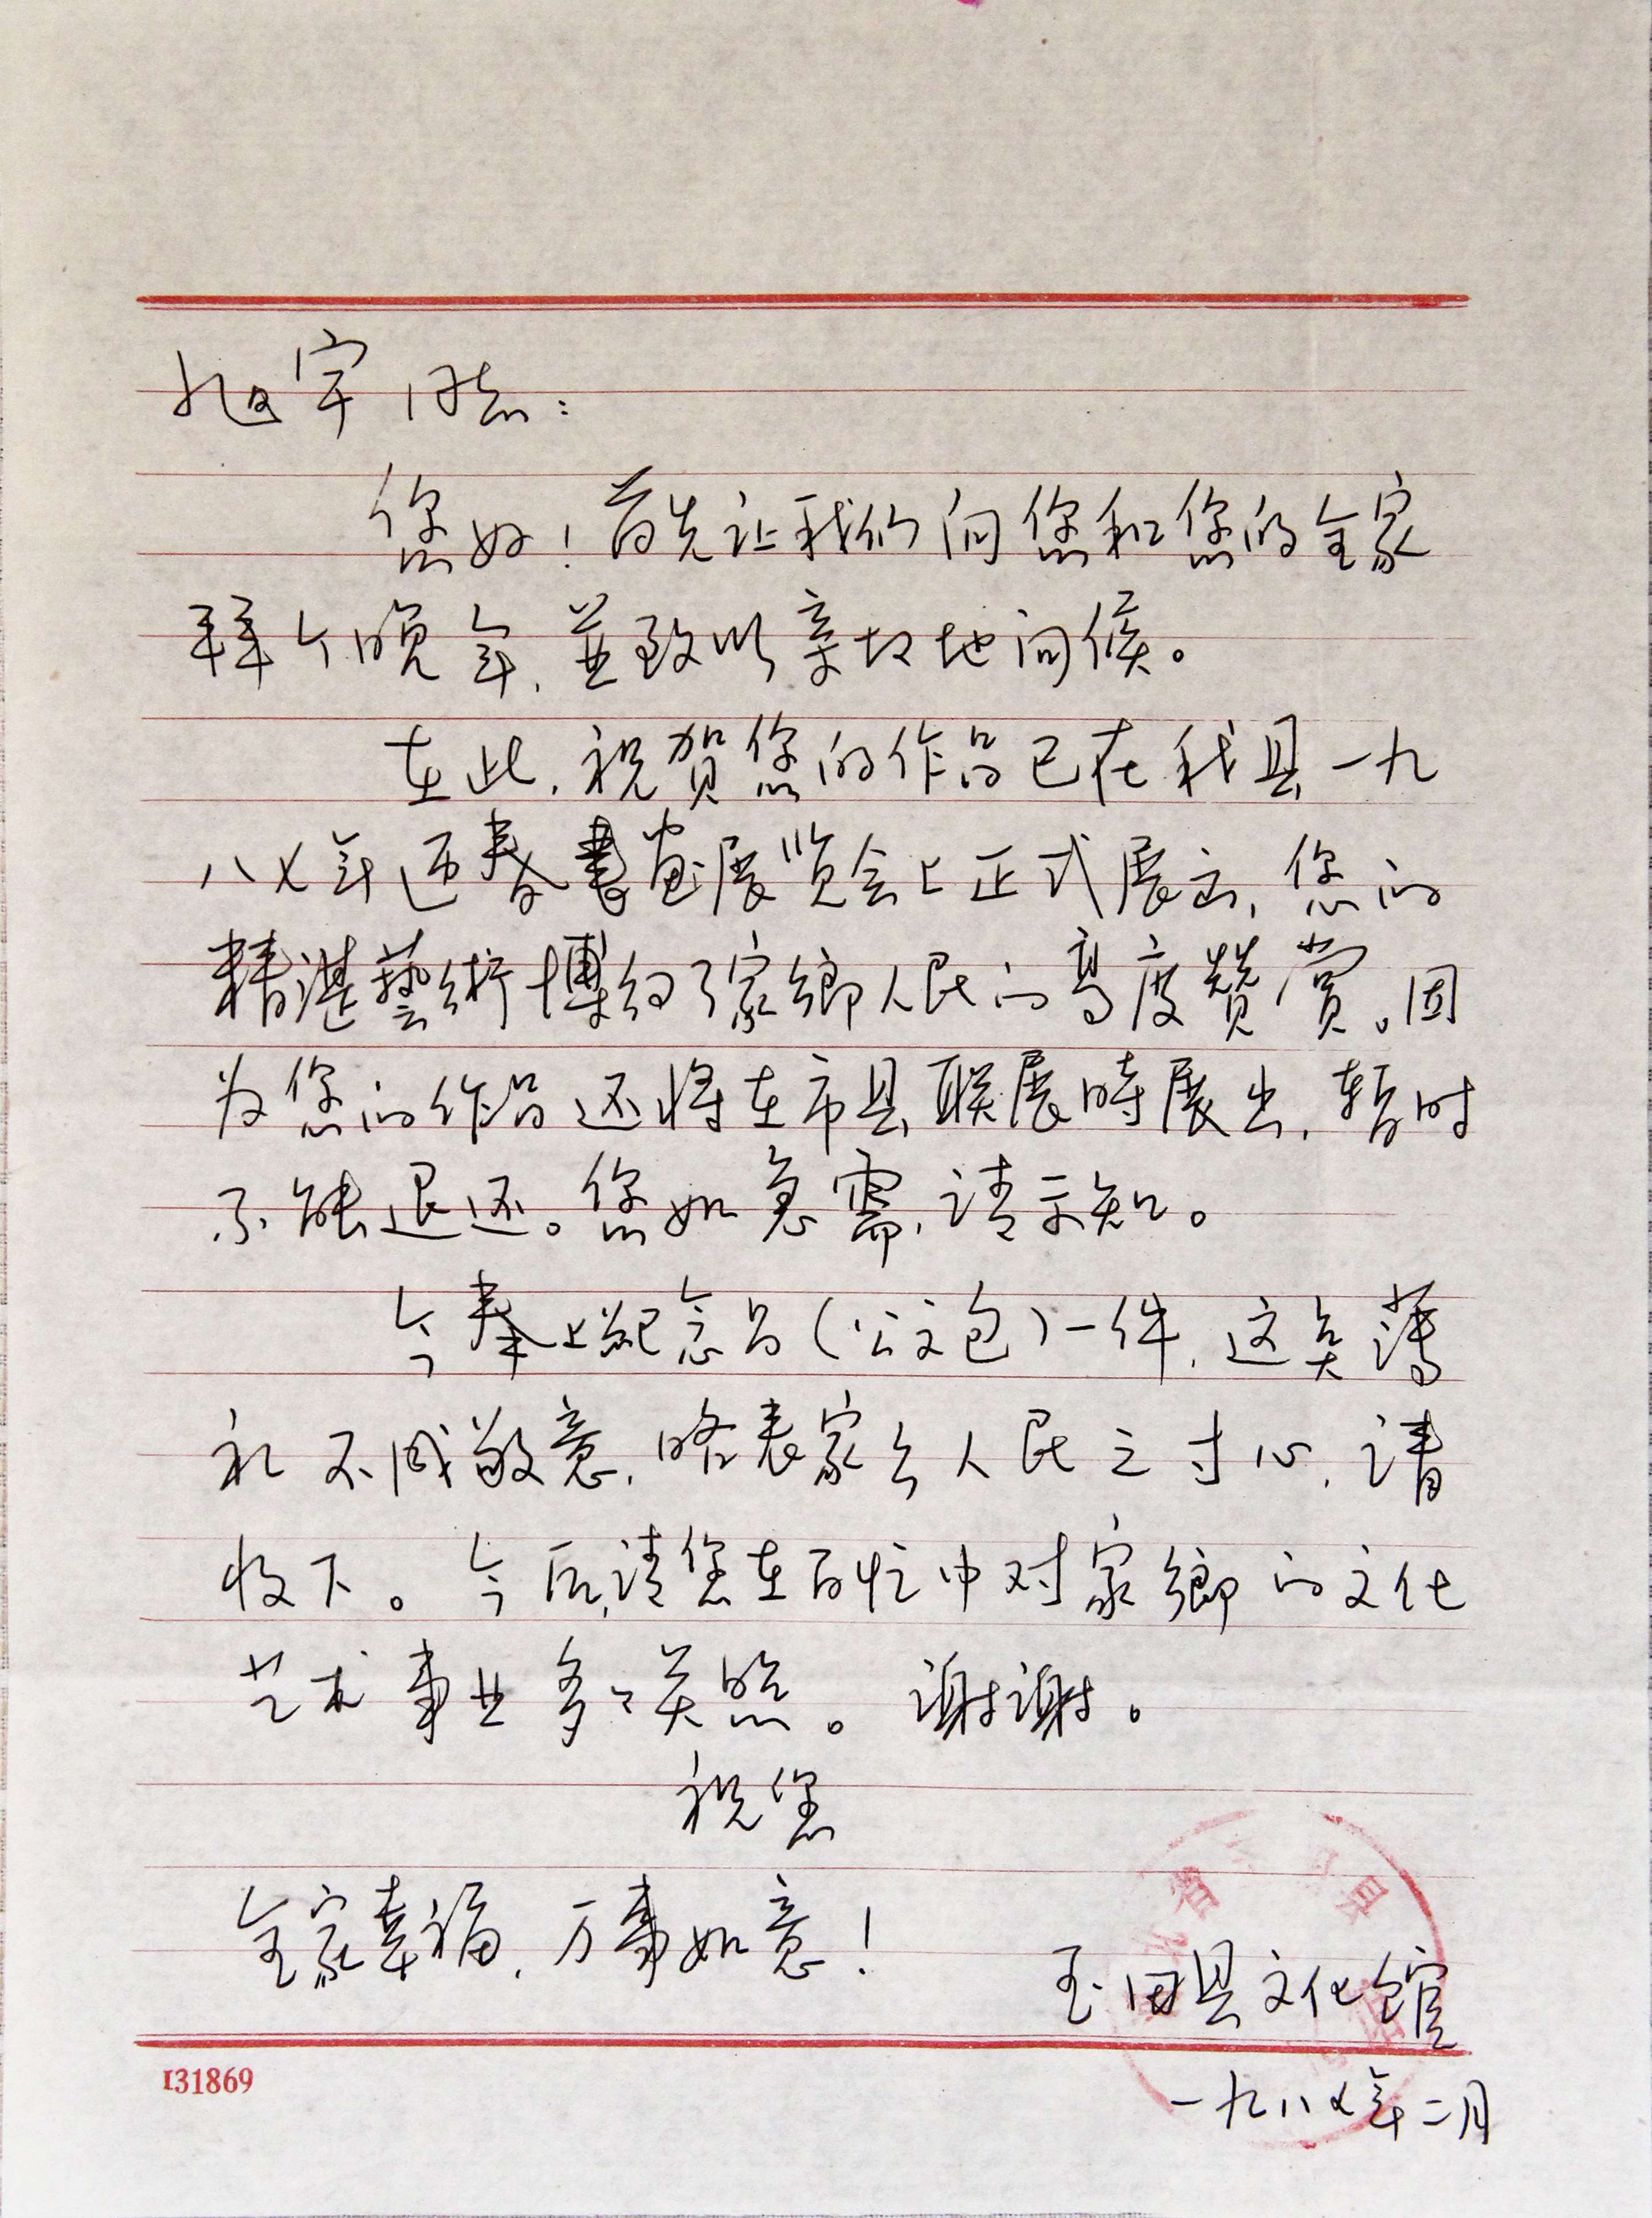 旭宇同志：
您好！首先让我们向您和您的全家
拜个晚年，並致以亲切地问候。
在此，祝贺您的作品已在我县一九
八七年迎春書画展览会上正式展出，您的
精湛藝術博得了家鄉人民的高度赞赏。因
为您的作品还将在市县联展時展出，暂时
不能退还。您如急需，请示知。
今奉上紀念品（公文包）一件，这点薄
礼不成敬意，略表家乡人民之寸心，请
收下。今后，请您在百忙中对家鄉的文化
艺术事业多〻关照。谢谢。
祝您
全家幸福，万事如意！
省 县
玉田县文化馆
131869
一九八七年二月